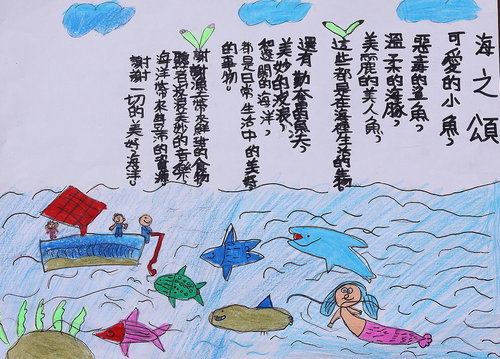 海之頌
可愛的小魚，
惡毒的魚，
溫柔的海豚，
美麗的美人魚，
這些都是在海裡生活的
還有勤奮的漁夫，
美妙的波浪，
和遼闊的海洋，
都是日常生活中的美好
的事物。
謝謝海帶來鮮甜的食物
聽著波浪美妙的音樂
海洋帶來豐富的寶藏
謝謝一切的美好海洋。